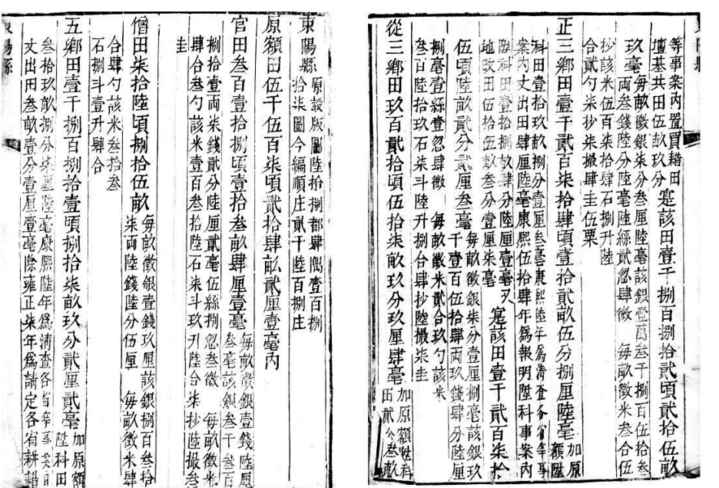 東陽縣 原設版圖陸拾捌都肆隅壹百捌
拾柒圖今編順庄貳千陸百捌庄
原額田伍千伍百柒頃貳拾肆畝貳厘壹毫內
官田叁百壹拾捌頃壹拾叁畝肆厘壹毫 每畝徵銀壹錢陸厘
叁毫該銀叁千叁百
捌拾壹兩柒錢貳分陸厘貳毫伍絲捌忽叁微 每畝徵米
肆合叁勺該米壹百叁拾陸石柒斗玖升陸合柒抄陸撮叁
圭
僧田柒拾陸頃捌拾伍畝 每畝徵銀壹錢玖厘該銀捌百叁拾
柒兩陸錢陸分伍厘 每畝徵米肆
合肆勺該米叁拾叁
石捌斗壹升肆合
五鄉田壹千捌百捌拾壹頃捌拾柒畝玖分貳厘貳毫 加原額
陞科田
叁拾玖畝捌分柒厘陸毫康熙陸年為清查各省等事案內
丈出田叁畝壹分壹厘壹毫除雍正柒年為請定各省耕耤
東陽縣
等事案內置買耤田
壇基共田伍畝玖分 寔該田壹千捌百捌拾貳頃貳拾伍畝
玖毫 每畝徵銀柒分叁毫該銀壹萬叁千捌百伍拾叁
兩叁錢陸分陸毫陸絲貳忽肆微 每畝徵米叁合伍
抄該米伍百柒拾肆石捌升陸
合貳勺柒抄柒撮肆圭伍粟
正三鄉田壹千貳百柒拾肆頃壹拾貳畝伍分捌厘陸毫 加原
額陞
科田壹拾玖畝捌分壹厘叁毫康熙陸年為清查各省等事
案內丈出田肆厘陸毫康熙伍拾肆年為報明陞科事案內
陞科田壹拾捌畝肆分陸厘壹毫又
地改田伍拾伍畝叁分壹厘柒毫 寔該田壹千貳百柒拾
伍頃陸畝貳分貳厘叁毫 每畝徵銀柒分壹厘捌毫該銀玖
千壹百伍拾肆兩玖錢肆分陸厘
捌毫壹絲壹忽肆微 每畝徵米貳合玖勺該米
叁百陸拾玖石柒斗陸升捌合肆抄陸撮柒圭
從三鄉田玖百貳拾頃伍拾柒畝玖分玖厘肆毫 加原額陞科
田貳分叁畝